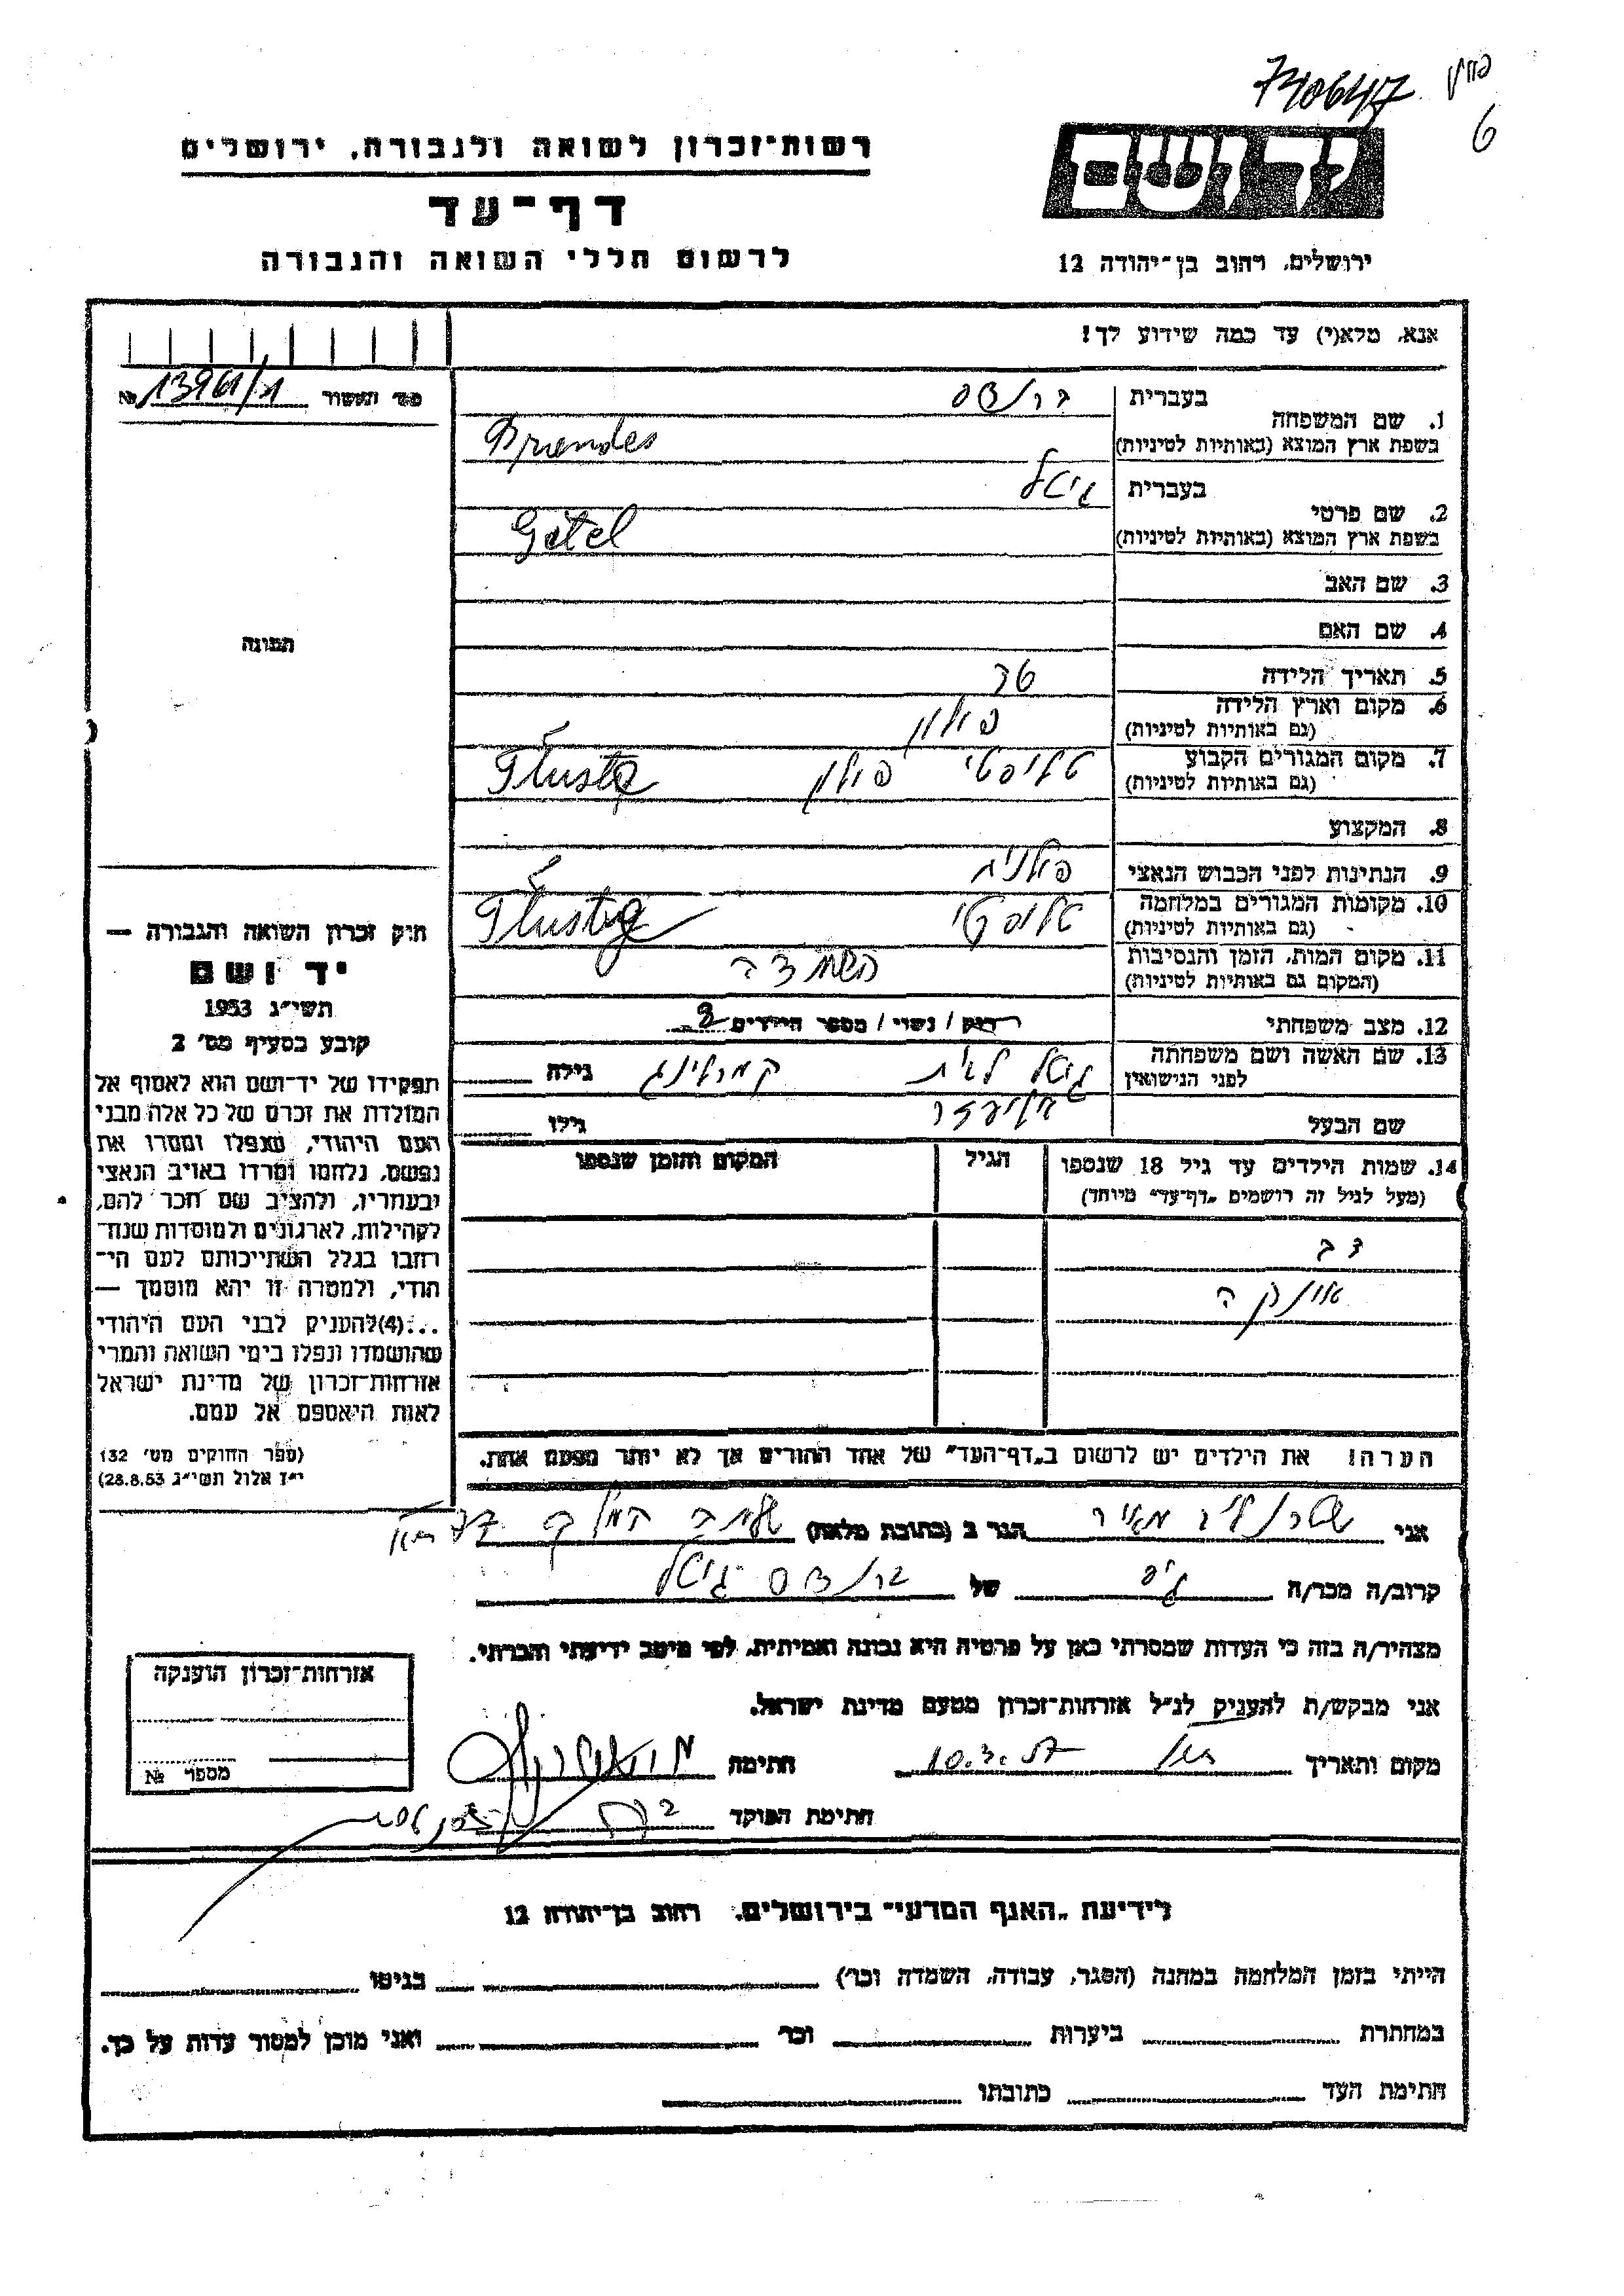 740647
6
רשות־זכרון לשואה ולגבורה, ירושלים
דף־עד
לרשום חללי השואה והגבורה
יד ושם
ירושלים, רחוב בן־יהודה 12
אנא, מלא(י) עד כמה שידוע לך!
מס' תאשור 13961/71 №
1. שם המשפחה
בעברית ברנדס
בשפת ארץ המוצא (באותיות לטיניות) Brendes
2. שם פרטי
בעברית גיטל
בשפת ארץ המוצא (באותיות לטיניות) Gitel
3. שם האב
4. שם האם
תמונה
5. תאריך הלידה
6. מקום וארץ הלידה
(גם באותיות לטיניות) פולין
7. מקום המגורים הקבוע
(גם באותיות לטיניות) טלוסטי פולין Tłuste
8. המקצוע
9. הנתינות לפני הכבוש הנאצי פולנית
10. מקומות המגורים במלחמה
(גם באותיות לטיניות) טלוסטי Tłuste
11. מקום המות, הזמן והנסיבות
(המקום גם באותיות לטיניות) השמדה
12. מצב משפחתי רווק / נשוי / מספר הילדים
13. שם האשה ושם משפחתה
לפני הנישואין גיטל לאה גילה
שם הבעל אליעזר גילו
14. שמות הילדים עד גיל 18 שנספו
(מעל לגיל זה רושמים „דף־עד" מיוחד)
הגיל
המקום והזמן שנספו
הערה! את הילדים יש לרשום ב„דף־העד" של אחד ההורים אך לא יותר מפעם אחת.
חוק זכרון השואה והגבורה —
יד ושם
תשי״ג 1953
קובע בסעיף מס' 2
תפקידו של יד־ושם הוא לאסוף אל
המולדת את זכרם של כל אלה מבני
העם היהודי, שנפלו ומסרו את
נפשם, נלחמו ומרדו באויב הנאצי
ובעוזריו, ולהציב שם וזכר להם,
לקהילות, לארגונים ולמוסדות שנח־
רבו בגלל השתייכותם לעם הי־
הודי, ולמטרה זו יהא מוסמך —
...(4)להעניק לבני העם היהודי
שהושמדו ונפלו בימי השואה והמרי
אזרחות־זכרון של מדינת ישראל
לאות היאספם אל עמם.
(ספר החוקים מס' 132
י״ז אלול תשי״ג 28.8.53)
אני מאיר הגר ב (כתובת מלאה)
קרוב/ה מכר/ה גיס של ברנדס גיטל
מצהיר/ה בזה כי העדות שמסרתי כאן על פרטיה היא נכונה ואמיתית, לפי מיטב ידיעתי והכרתי.
אני מבקש/ת להעניק לנ״ל אזרחות־זכרון מטעם מדינת ישראל.
מקום ותאריך 10.3.57 חתימה
חתימת הפוקד
אזרחות־זכרון הוענקה
מספר №
לידיעת „האגף המדעי" בירושלים, רחוב בן־יהודה 12
הייתי בזמן המלחמה במחנה (הסגר, עבודה, השמדה וכו') בגיטו
במחתרת ביערות וכו' ואני מוכן למסור עדות על כך.
חתימת העד כתובתו